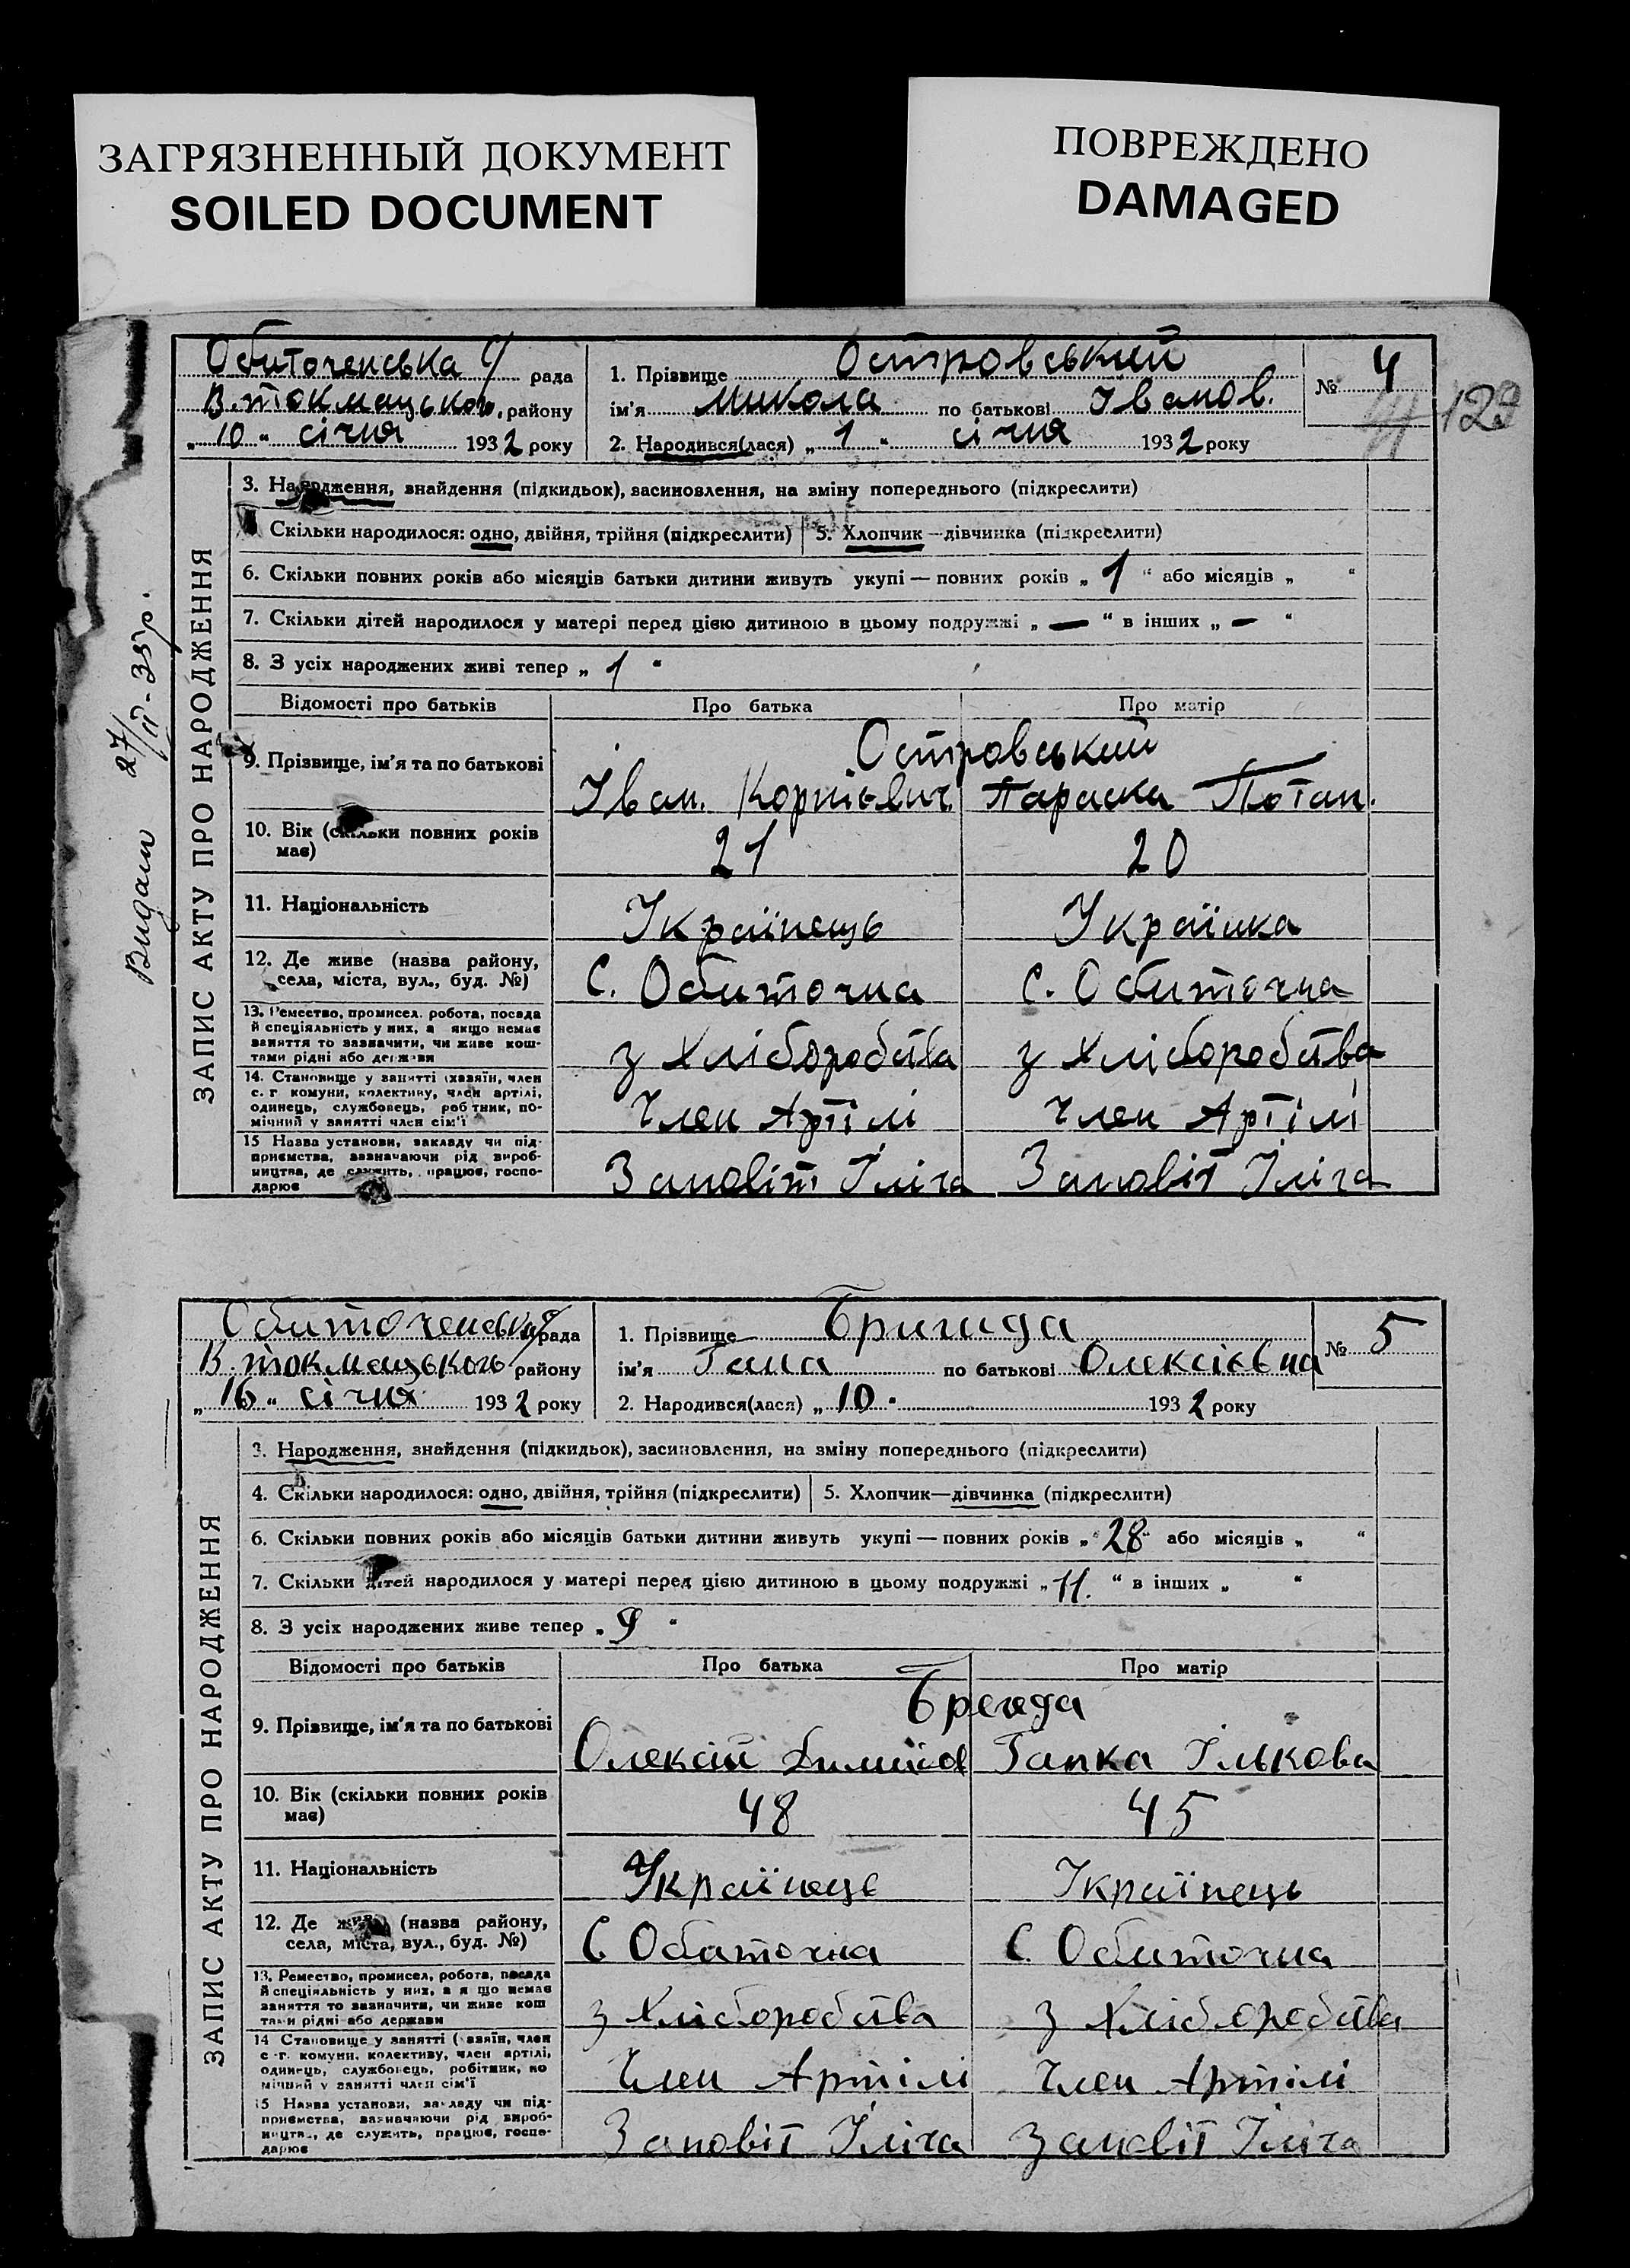 ЗАГРЯЗНЕННЫЙ ДОКУМЕНТ
SOILED DOCUMENT
ПОВРЕЖДЕНО
DAMAGED
129
Обиточенська с/ рада
В.Токмацького району
„ 10 “ січня 1932 року
1. Прізвище Островський
ім'я Микола по батькові Іванов.
2. Народився(лася) „ 1 “ січня 1932 року
№ 4
Видано 27/II-35р.
ЗАПИС АКТУ ПРО НАРОДЖЕННЯ
3. Народження, знайдення (підкидьок), засиновлення, на зміну попереднього (підкреслити)
Скільки народилося: одно, двійня, трійня (підкреслити) 5. Хлопчик—дівчинка (підкреслити)
6. Скільки повних років або місяців батьки дитини живуть укупі — повних років „ 1 “ або місяців „ “
7. Скільки дітей народилося у матері перед цією дитиною в цьому подружжі „ — “ в інших „ — “
8. З усіх народжених живі тепер „ 1 “
Відомості про батьків Про батька Про матір
9. Прізвище, ім'я та по батькові
Островський
Іван. Корнієвич Параска Потап.
10. Вік (скільки повних років має) 21 20
11. Національність Українець Українка
12. Де живе (назва району,
села, міста, вул., буд. №) С. Обиточна С. Обиточна
13. Ремество, промисел, робота, посада
й спеціяльність у них, а якщо немає
заняття то зазначити, чи живе кош-
тами рідні або держави
з Хліборобства з Хліборобства
14. Становище у занятті (хазяїн, член
с. г комуни, колективу, член артілі,
одинець, службовець, робітник, по-
мічний у занятті член сім'ї
Член Артілі Член Артілі
15 Назва установи, закладу чи під-
приємства, зазначаючи рід вироб-
ництва, де служить, працює, госпо-
дарює
Заповіт Іліча Заповіт Іліча
Обиточенська с/рада
В.Токмацького району
„ 16 “ січня 1932 року
1. Прізвище Бригида
ім'я Гана по батькові Олексієвна
2. Народився(лася) „ 10 “ 1932 року
№ 5
ЗАПИС АКТУ ПРО НАРОДЖЕННЯ
3. Народження, знайдення (підкидьок), засиновлення, на зміну попереднього (підкреслити)
4. Скільки народилося: одно, двійня, трійня (підкреслити) 5. Хлопчик—дівчинка (підкреслити)
6. Скільки повних років або місяців батьки дитини живуть укупі — повних років „ 28 “ або місяців „ “
7. Скільки дітей народилося у матері перед цією дитиною в цьому подружжі „ 11. “ в інших „ “
8. З усіх народжених живе тепер „ 9 “
Відомості про батьків Про батька Про матір
9. Прізвище, ім'я та по батькові
Олексій Гапка Ількова
10. Вік (скільки повних років
має) 48 45
11. Національність Українець Українець
12. Де живе (назва району,
села, міста, вул., буд. №) С Обиточна С. Обиточна
13. Ремество, промисел, робота, посада
й спеціяльність у них, а я що немає
заняття то зазначити, чи живе кош
тами рідні або держави
з Хліборобства з Хліборобства
14 Становище у занятті (хазяїн, член
с -г. комуни, колективу, член артілі,
одинець, службовець, робітник, по
мічний у занятті член сім'ї
Член Артілі Член Артілі
15 Назва установи, закладу чи під-
приємства, зазначаючи рід вироб-
ництва, де служить, працює, госпо-
дарює
Заповіт Іліча Заповіт Іліча